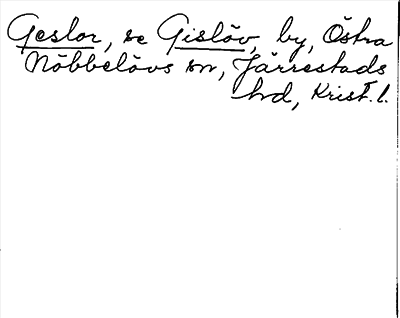 Geslor, se Gislöv, by, Östra
Nöbbelövs sn, Järrestads
hd, Krist. l.